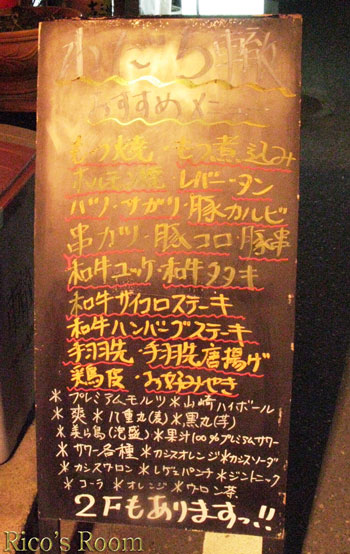 おすすめメニ
もつ焼・もつ煮込み
ホルモン焼 レバー・タン
ハツ・サガリ・豚カルビ
串カツ・豚コロ・豚串
和牛ユッケ・和牛タタキ
和牛サイコロステーキ
和牛ハンバーグステーキ
手羽先・手羽先唐揚げ
鶏皮・お好みやき
＊プレミアムモルツ＊山崎ハイボール
＊爽＊八重丸(麦)＊黒丸(芋)
＊美ら島(泡盛)＊果汁100%プレミアムサワー
＊サワー各種＊カシスオレンジ＊カシスソーダ
＊カシスウーロン＊レゲエパンチ＊ジントニック
＊コーラ＊オレンジ＊ウーロン茶
2Fもありますっ!!
Rico's Room